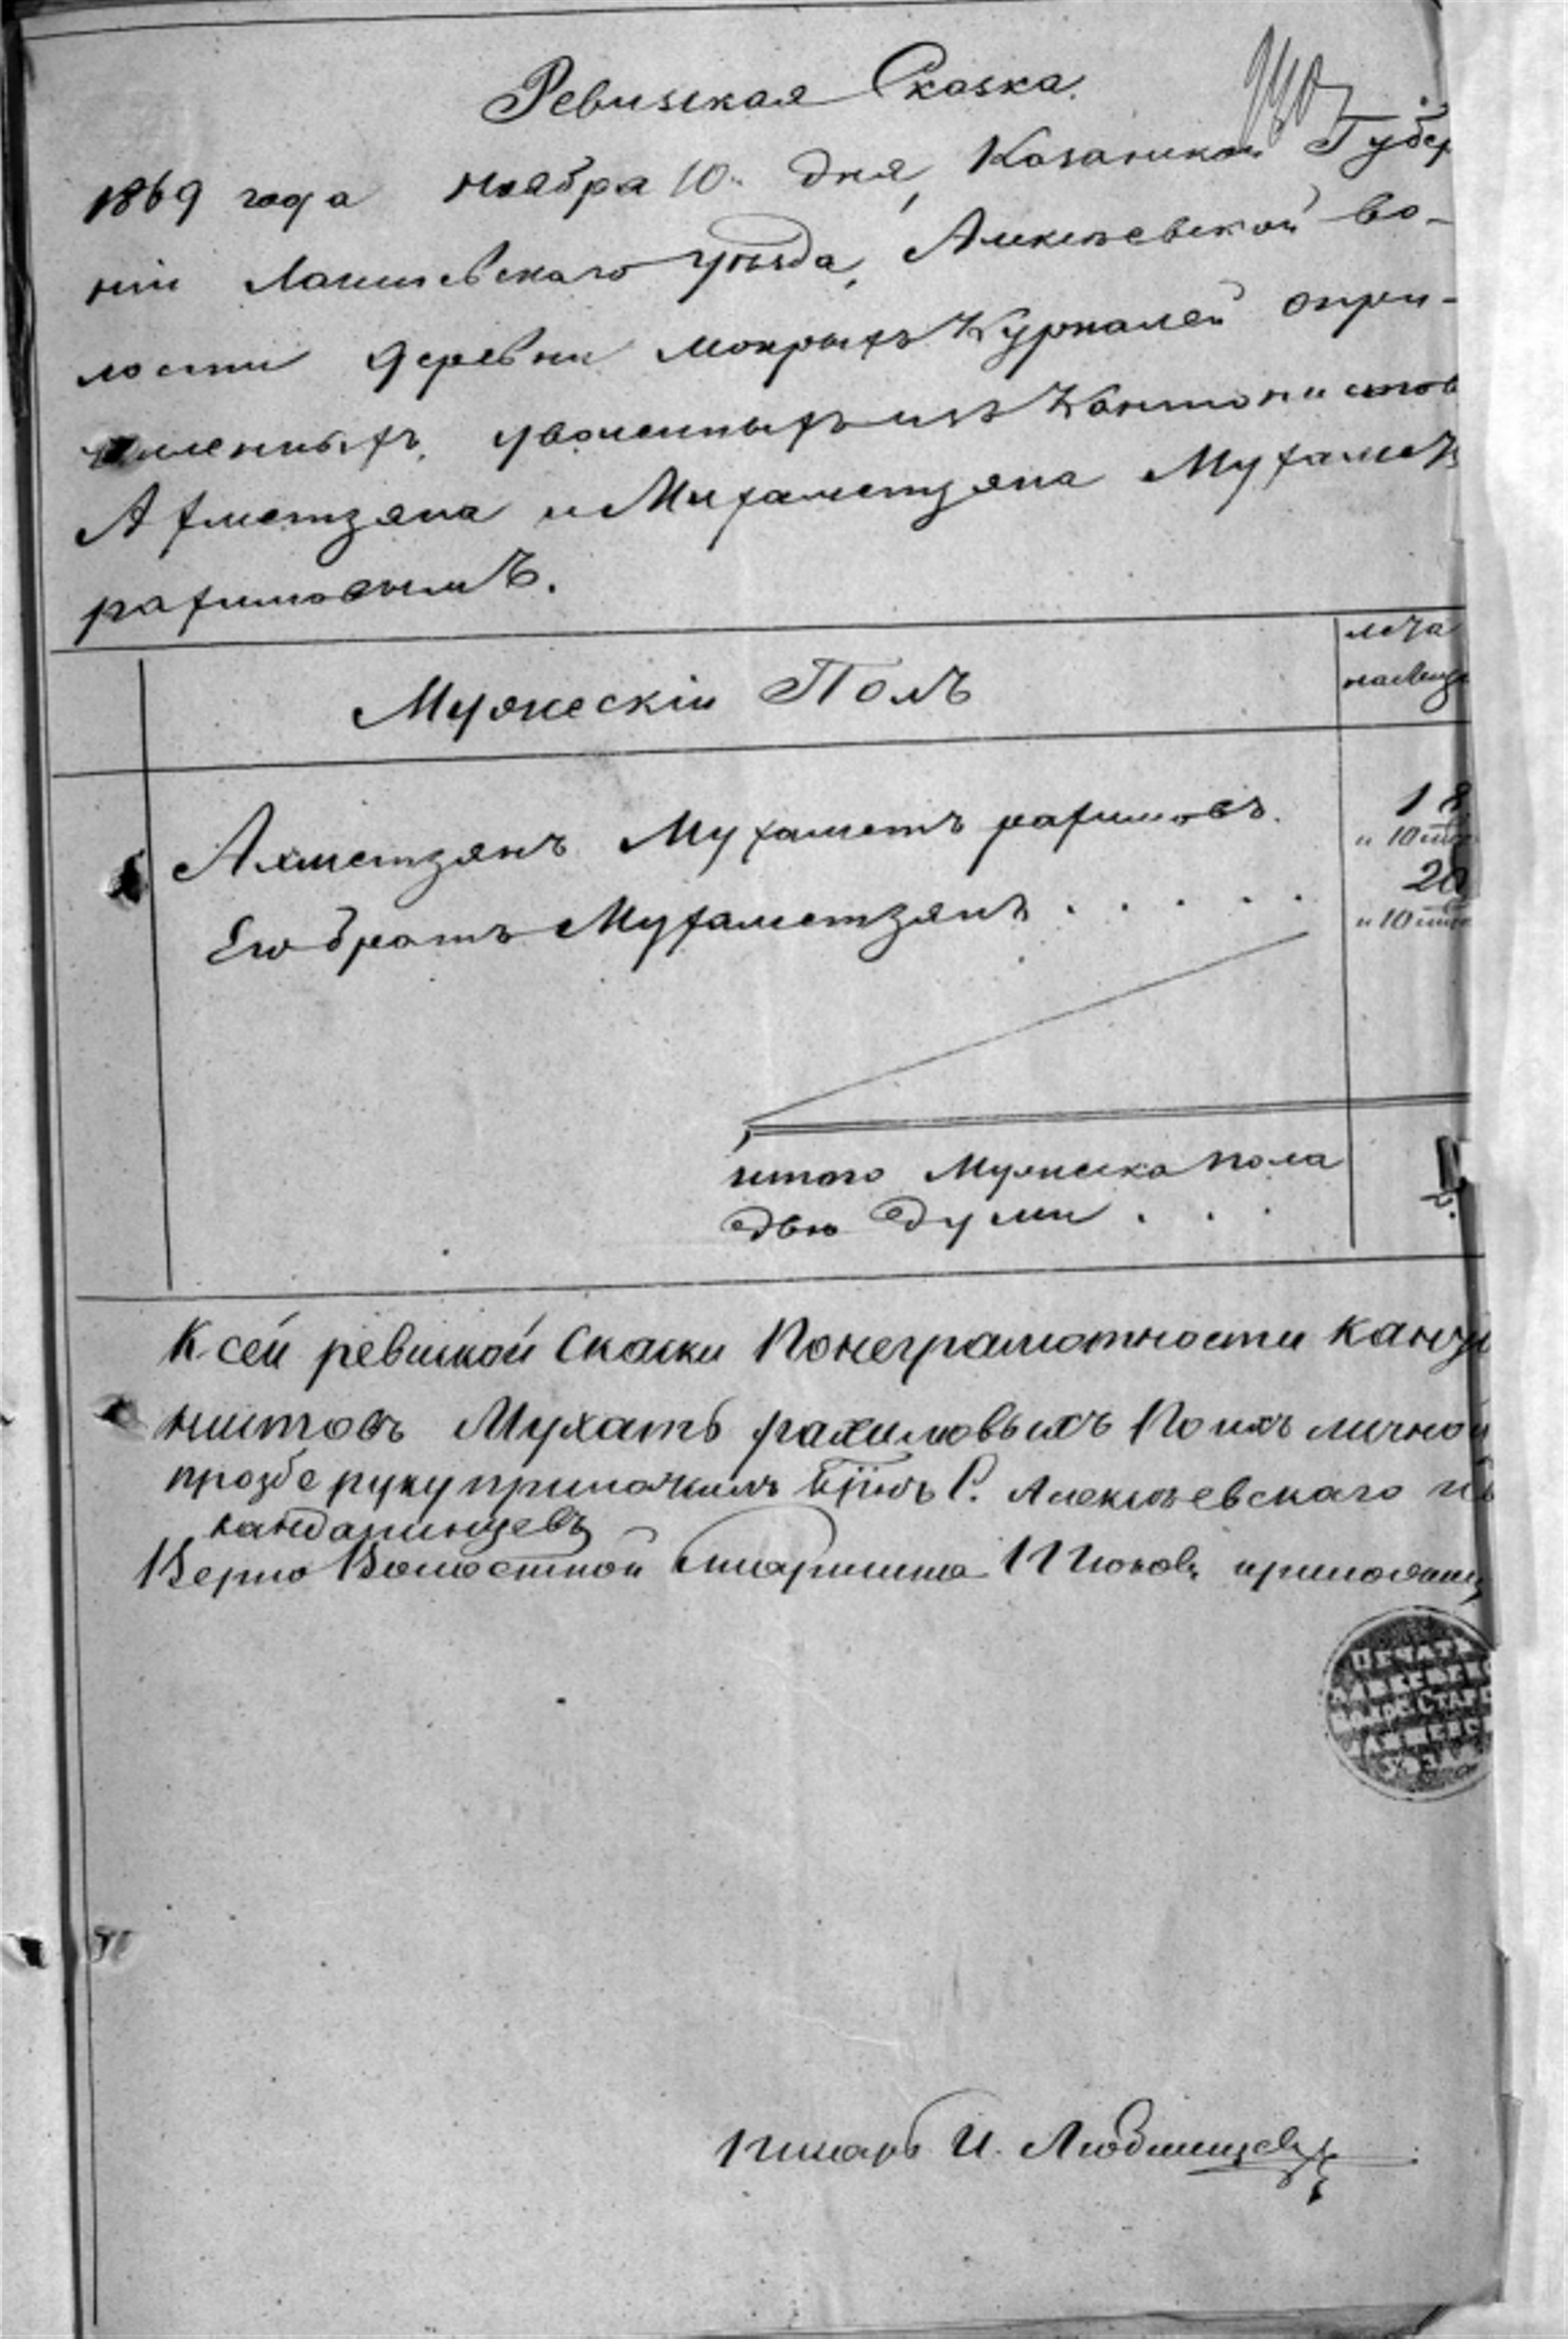 Ревизская Сказка.
1869 года ноября 10. дня, Казанской Губер
ніи Лаишевскаго уѣзда, Алексѣевской во-
лости деревни мокрыхъ Курналей опри-
численныхъ, уволенныхъ изъ Кантонистов
Ахметзяна и Мухаметзяна Мухаметъ
рахимовымъ.
лета
налицо
Мужескій Полъ
Ахметзянъ Мухаметъ рахимовъ.
18
и 10
Его братъ Мухаметзянъ . . . . .
20
и 10
итого Мужеска пола
двѣ души . . .
2.
К сей ревиской Скаски Понеграмотности канто
нистовъ Мухатъ рахимовыхъ По ихъ личной
прозбе руку приложилъ С. Алексѣевскаго
канданинцевъ
Верно Волостной Старшина Попов приложил
ПЕЧАТЬ
АЛЕКСѢЕВСК
ВОЛОС. СТАРШ
ЛАИШЕВСК
УѢЗДА
Писарь И. Любимцевъ